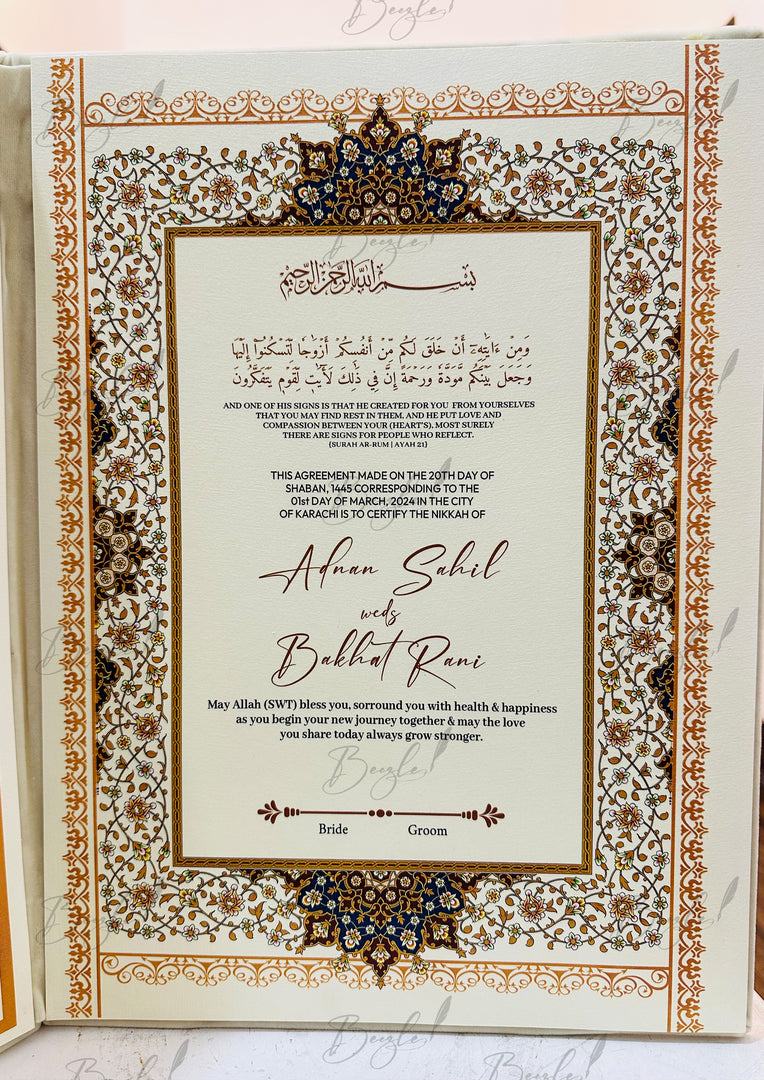 بسم الله الرحمن الرحيم
وَمِنْ ءَايَٰتِهِۦٓ أَنْ خَلَقَ لَكُم مِّنْ أَنفُسِكُمْ أَزْوَٰجًا لِّتَسْكُنُوٓا۟ إِلَيْهَا
وَجَعَلَ بَيْنَكُم مَّوَدَّةً وَرَحْمَةً إِنَّ فِى ذَٰلِكَ لَءَايَٰتٍ لِّقَوْمٍ يَتَفَكَّرُونَ
AND ONE OF HIS SIGNS IS THAT HE CREATED FOR YOU FROM YOURSELVES
THAT YOU MAY FIND REST IN THEM, AND HE PUT LOVE AND
COMPASSION BETWEEN YOUR (HEART'S), MOST SURELY
THERE ARE SIGNS FOR PEOPLE WHO REFLECT.
{SURAH AR-RUM | AYAH 21}
THIS AGREEMENT MADE ON THE 20TH DAY OF
SHABAN, 1445 CORRESPONDING TO THE
01st DAY OF MARCH, 2024 IN THE CITY
OF KARACHI IS TO CERTIFY THE NIKKAH OF
Adnan Sahil
weds
Bakhat Rani
May Allah (SWT) bless you, sorround you with health & happiness
as you begin your new journey together & may the love
you share today always grow stronger.
Bride Groom
Beezle